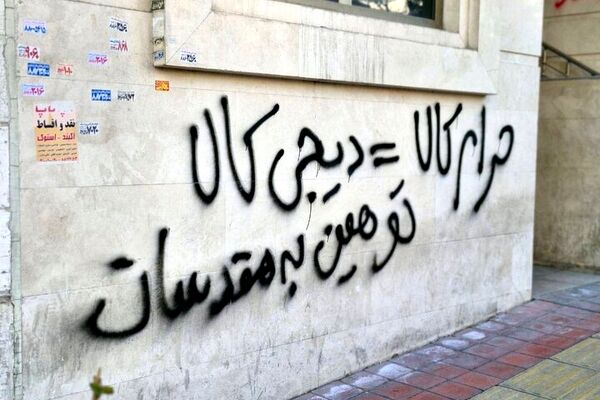 حرام کالا = دیجی کالا
توهین به مقدسات
نقد و اقساط
آکبند - استوک